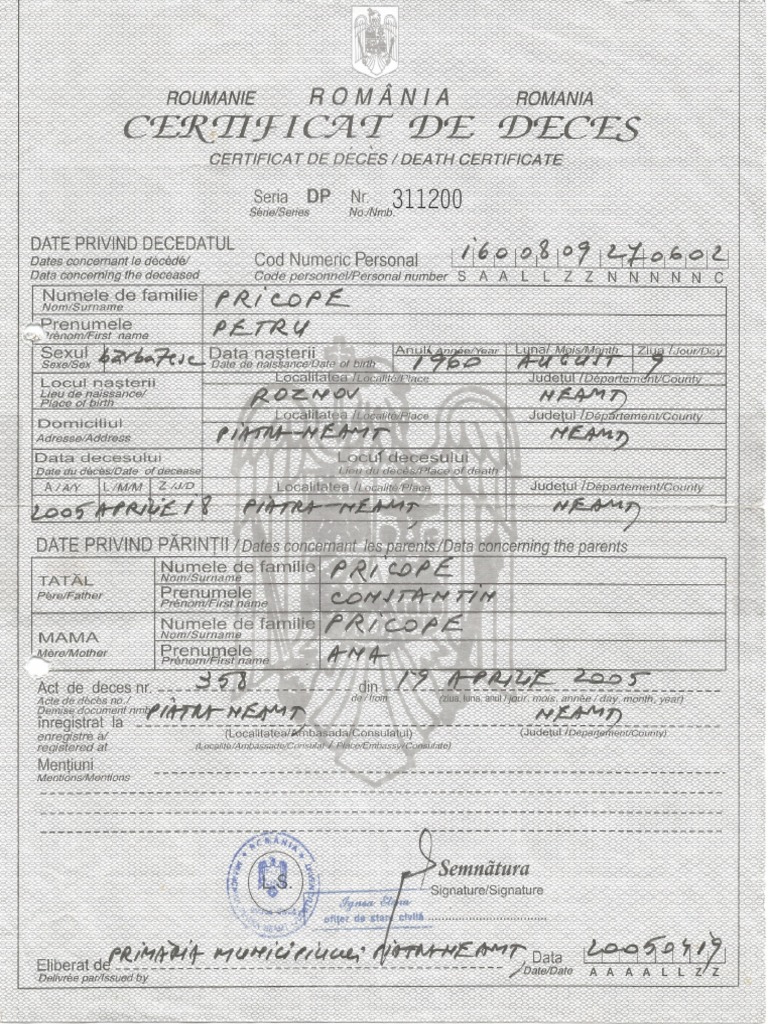 ROUMANIE ROMÂNIA ROMANIA
CERTIFICAT DE DECES
CERTIFICAT DE DÉCÈS / DEATH CERTIFICATE
Seria DP Nr. 311200
Série/Series No./Nmb.
DATE PRIVIND DECEDATUL
Dates concernant le décédé/
Data concerning the deceased
Cod Numeric Personal 1600809270602
Code personnel/Personal number S A A L L Z Z N N N N N C
Numele de familie PRICOPE
Nom/Surname
Prenumele PETRU
Prénom/First name
Sexul bărbătesc Data nașterii Anul/ Année/Year Luna/ Mois/Month Ziua /Jour/Day
Sexe/Sex Date de naissance/Date of birth 1960 AUGUST 9
Locul nașterii Localitatea /Localité/Place Județul /Département/County
Lieu de naissance/ ROZNOV NEAMȚ
Place of birth
Domiciliul Localitatea /Localité/Place Județul /Département/County
Adresse/Address PIATRA-NEAMȚ NEAMȚ
Data decesului Locul decesului
Date du décès/Date of decease Lieu du décès/Place of death
A / A/Y L / M/M Z /J/D Localitatea /Localité/Place Județul /Département/County
2005 APRILIE 18 PIATRA-NEAMȚ NEAMȚ
DATE PRIVIND PĂRINȚII / Dates concernant les parents /Data concerning the parents
TATĂL Numele de familie PRICOPE
Nom/Surname
Père/Father Prenumele CONSTANTIN
Prénom/First name
MAMA Numele de familie PRICOPE
Nom/Surname
Mère/Mother Prenumele ANA
Prénom/First name
Act de deces nr. 358 din 19 APRILIE 2005
Acte de décès no./ de / from (ziua, luna, anul / jour, mois, année / day, month, year)
Demise document nmb.
înregistrat la PIATRA NEAMȚ NEAMȚ
enregistre a/ (Localitatea/Ambasada/Consulatul) (Județul /Département/County)
registered at (Localité/Ambasade/Consulat / Place/Embassy/Consulate)
Mențiuni
Mentions/Mentions
ROMÂNIA
L.S.
Semnătura
Signature/Signature
ofițer de stare civilă
Eliberat de PRIMĂRIA MUNICIPIULUI PIATRA NEAMȚ Data 20050419
Délivrée par/Issued by Date/Date A A A A L L Z Z